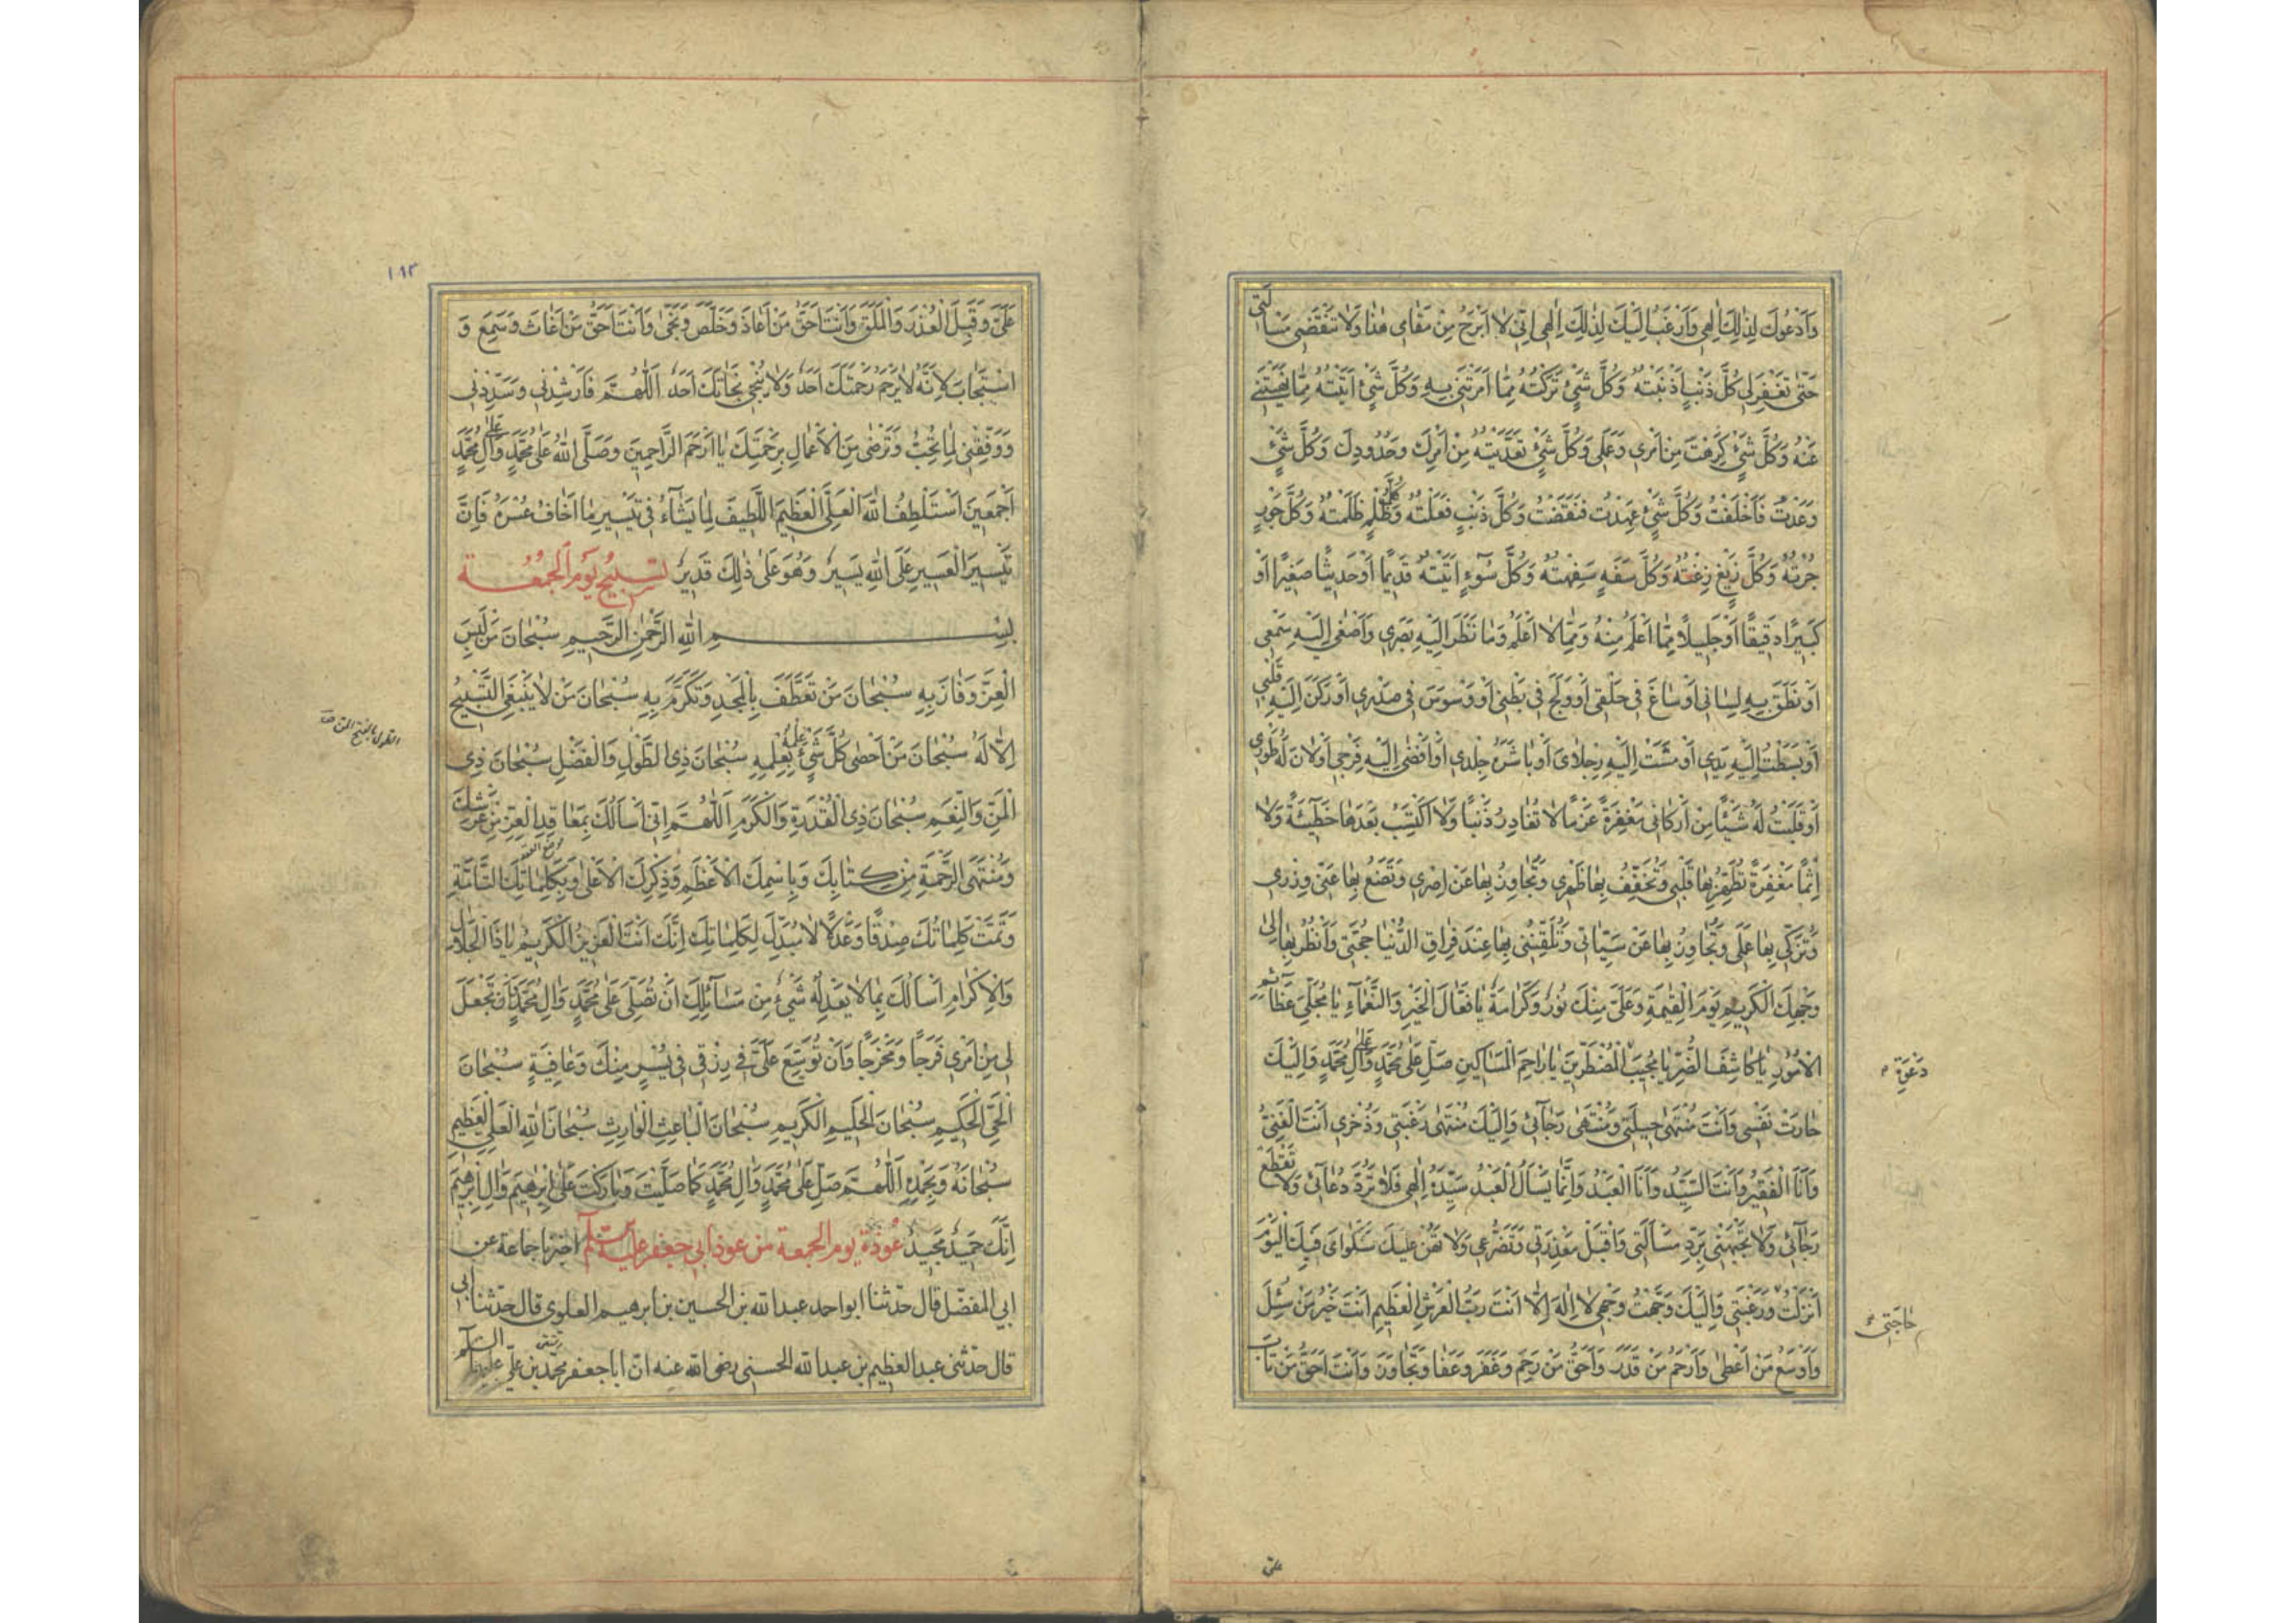 وَاَدْعُوكَ لِذٰلِكَ اِلٰهِي وَاَرْغَبُ اِلَيْكَ لِذٰلِكَ اِلٰهِي اِنّي لٰا اَبْرَحُ مِنْ مَقٰامِي هٰذٰا وَلٰا تَنْقَضِي مَسْاَلَتي
حَتّٰى تَغْفِرَ لِي كُلَّ ذَنْبٍ اَذْنَبْتُهُ وَكُلَّ شَيْءٍ تَرَكْتُهُ مِمّٰا اَمَرْتَنِي بِهِ وَكُلَّ شَيْءٍ اَتَيْتُهُ مِمّٰا نَهَيْتَنِي
عَنْهُ وَكُلَّ شَيْءٍ كَرِهْتَ مِنْ اَمْرِي وَعَمَلي وَكُلَّ شَيْءٍ تَعَدَّيْتُهُ مِنْ اَمْرِكَ وَحُدُودِكَ وَكُلَّ شَيْءٍ
وَعَدْتُ فَاَخْلَفْتُ وَكُلَّ شَيْءٍ عَهِدْتُ فَنَقَضْتُ وَكُلَّ ذَنْبٍ فَعَلْتُهُ وَكُلَّ ظُلْمٍ ظَلَمْتُهُ وَكُلَّ جَوْرٍ
جُرْتُهُ وَكُلَّ زَيْغٍ زِغْتُهُ وَكُلَّ سَفَهٍ سَفِهْتُهُ وَكُلَّ سُوٓءٍ اَتَيْتُهُ قَدِيمًا اَوْ حَدِيثًا صَغِيرًا اَوْ
كَبِيرًا دَقِيقًا اَوْ جَلِيلًا مِمّٰا اَعْلَمُ مِنْهُ وَمِمّٰا لٰا اَعْلَمُ وَمٰا نَظَرَ اِلَيْهِ بَصَرِي وَاَصْغٰى اِلَيْهِ سَمْعِي
اَوْ نَطَقَ بِهِ لِسٰانِي اَوْ سٰاغَ فِي حَلْقِي اَوْ وَلَجَ فِي بَطْنِي اَوْ وَسْوَسَ فِي صَدْرِي اَوْ رَكَنَ اِلَيْهِ قَلْبِي
اَوْ بَسَطْتُ اِلَيْهِ يَدِي اَوْ مَشَتْ اِلَيْهِ رِجْلٰايَ اَوْ بٰاشَرَهُ جِلْدِي اَوْ اَفْضٰى اِلَيْهِ فَرْجِي اَوْ لٰانَ لَهُ طَوْرِي
اَوْ قَلَبْتُ لَهُ شَيْئًا مِنْ اَرْكٰانِي مَغْفِرَةً عَزْمًا لٰا تُغٰادِرُ ذَنْبًا وَلٰا اَكْتَسِبُ بَعْدَهٰا خَطِيٓئَةً وَلٰا
اِثْمًا مَغْفِرَةً تُطَهِّرُ بِهٰا قَلْبِي وَتُخَفِّفُ بِهٰا ظَهْرِي وَتَجٰاوَزُ بِهٰا عَنْ اِصْرِي وَتَضَعُ بِهٰا عَنّي وِزْرِي
وَتُزَكّي بِهٰا عَمَلي وَتَجٰاوَزُ بِهٰا عَنْ سَيِّئٰاتي وَتُلَقِّنُنِي بِهٰا عِنْدَ فِرٰاقِ الدُّنْيٰا حُجَّتِي وَاَنْظُرُ بِهٰا اِلىٰ
وَجْهِكَ الْكَرِيمِ يَوْمَ الْقِيٰمَةِ وَعَلَيَّ مِنْكَ نُورٌ وَكَرٰامَةٌ يٰا فَعّٰالَ الْخَيْرِ وَالنَّعْمٰآءِ يٰا مُجَلِّيَ عَظٰآئِمِ
الْاُمُورِ يٰا كٰاشِفَ الضُّرِّ يٰا مُجِيبَ الْمُضْطَرّينَ يٰا رٰاحِمَ الْمَسٰاكِينِ صَلِّ عَلىٰ مُحَمَّدٍ وَعَلىٰ آلِ مُحَمَّدٍ وَاِلَيْكَ
دَعْوَةِ
حٰارَتْ نَفْسِي وَاَنْتَ مُنْتَهٰى حِيلَتِي وَمُنْتَهٰى رَجٰآئِي وَاِلَيْكَ مُنْتَهٰى رَغْبَتِي وَذُخْرِي اَنْتَ الْغَنِيُّ
وَاَنَا الْفَقِيرُ وَاَنْتَ السَّيِّدُ وَاَنَا الْعَبْدُ وَاِنَّمٰا يَسْاَلُ الْعَبْدُ سَيِّدَهُ اِلٰهِي فَلٰا تَرُدَّ دُعٰآئِي وَلٰا تَقْطَعْ
رَجٰآئِي وَلٰا تُجَبِّهْنِي بِرَدِّ مَسْاَلَتِي وَاقْبَلْ مَعْذِرَتي وَتَضَرُّعِي وَلٰا تَهُنْ عَلَيْكَ شَكْوٰايَ فَبِكَ الْيَوْمَ
اَنْزَلْتُ وَرَغْبَتِي وَاِلَيْكَ وَجَّهْتُ وَجْهِي لٰا اِلٰهَ اِلّٰا اَنْتَ رَبُّ الْعَرْشِ الْعَظِيمِ اَنْتَ خَيْرُ مَنْ سُئِلَ
حٰاجَتِي
وَاَوْسَعُ مَنْ اَعْطىٰ وَاَرْحَمُ مَنْ قَدَرَ وَاَحَقُّ مَنْ رَحِمَ وَغَفَرَ وَعَفٰا وَتَجٰاوَزَ وَاَنْتَ اَحَقُّ مَنْ تٰابَ
عليّ
١٨٣
عَلَيَّ وَقَبِلَ الْعُذْرَ وَالْمَلَقَ وَاَنْتَ اَحَقُّ مَنْ اَعٰاذَ وَخَلَّصَ وَنَجّىٰ وَاَنْتَ اَحَقُّ مَنْ اَغٰاثَ وَسَمِعَ وَ
اسْتَجٰابَ لِاَنَّهُ لٰا يَرْحَمُ رَحْمَتَكَ اَحَدٌ وَلٰا يُنْجِي نَجٰاتَكَ اَحَدٌ اَللّٰهُمَّ فَاَرْشِدْنِي وَسَدِّدْنِي
وَوَفِّقْنِي لِمٰا تُحِبُّ وَتَرْضٰى مِنَ الْاَعْمٰالِ بِرَحْمَتِكَ يٰا اَرْحَمَ الرّٰاحِمِينَ وَصَلَّى اللّٰهُ عَلىٰ مُحَمَّدٍ وَعَلىٰ آلِ مُحَمَّدٍ
اَجْمَعِينَ اَسْتَلْطِفُ اللّٰهَ الْعَلِيَّ الْعَظِيمَ اللَّطِيفَ لِمٰا يَشٰآءُ فِي تَيْسِيرِ مٰا اَخٰافُ عُسْرَهُ فَاِنَّ
تَيْسِيرَ الْعَسِيرِ عَلَى اللّٰهِ يَسِيرٌ وَهُوَ عَلىٰ ذٰلِكَ قَدِيرٌ تَسْبِيحُ يَوْمِ الْجُمُعَةِ
بِسْمِ اللّٰهِ الرَّحْمٰنِ الرَّحِيمِ سُبْحٰانَ مَنْ لَبِسَ
الْعِزَّ وَفٰازَ بِهِ سُبْحٰانَ مَنْ تَعَطَّفَ بِالْمَجْدِ وَتَكَرَّمَ بِهِ سُبْحٰانَ مَنْ لٰا يَنْبَغِي التَّسْبِيحُ
اِلّٰا لَهُ سُبْحٰانَ مَنْ اَحْصٰى كُلَّ شَيْءٍ بِعِلْمِهِ سُبْحٰانَ ذِي الطَّوْلِ وَالْفَضْلِ سُبْحٰانَ ذِي
عِلْمُهُ
الطول بالفتح المن
الْمَنِّ وَالنِّعَمِ سُبْحٰانَ ذِي الْقُدْرَةِ وَالْكَرَمِ اَللّٰهُمَّ اِنّي اَسْاَلُكَ بِمَعٰاقِدِ الْعِزِّ مِنْ عَرْشِكَ
وَمُنْتَهَى الرَّحْمَةِ مِنْ كِتٰابِكَ وَبِاسْمِكَ الْاَعْظَمِ وَذِكْرِكَ الْاَعْلىٰ وَبِكَلِمٰاتِكَ التّٰامَّةِ
وَتَمَّتْ كَلِمٰاتُكَ صِدْقًا وَعَدْلًا لٰا مُبَدِّلَ لِكَلِمٰاتِكَ اِنَّكَ اَنْتَ الْعَزِيزُ الْكَرِيمُ يٰا ذَا الْجَلٰالِ
وَالْاِكْرٰامِ اَسْاَلُكَ بِمٰا لٰا يَعْدِلُهُ شَيْءٌ مِنْ مَسٰآئِلِكَ اَنْ تُصَلِّيَ عَلىٰ مُحَمَّدٍ وَآلِ مُحَمَّدٍ وَاَنْ تَجْعَلَ
لِي مِنْ اَمْرِي فَرَجًا وَمَخْرَجًا وَاَنْ تُوَسِّعَ عَلَيَّ فِي رِزْقِي فِي يُسْرٍ مِنْكَ وَعٰافِيَةٍ سُبْحٰانَ
الْحَيِّ الْحَكِيمِ سُبْحٰانَ الْحَلِيمِ الْكَرِيمِ سُبْحٰانَ الْبٰاعِثِ الْوٰارِثِ سُبْحٰانَ اللّٰهِ الْعَلِيِّ الْعَظِيمِ
سُبْحٰانَهُ وَبِحَمْدِهِ اَللّٰهُمَّ صَلِّ عَلىٰ مُحَمَّدٍ وَآلِ مُحَمَّدٍ كَمٰا صَلَّيْتَ وَبٰارَكْتَ عَلىٰ اِبْرٰهِيمَ وَآلِ اِبْرٰهِيمَ
اِنَّكَ حَمِيدٌ مَجِيدٌ عُوذَة يوم الجمعة من عوذ ابي جعفر عليه السلم اخبرنا جماعة عن
ابي المفضّل قال حدّثنا ابو احمد عبد الله بن الحسين بن ابرهيم العلوي قال حدّثنا ابي
قال حدّثني عبد العظيم بن عبد الله الحسني رضي الله عنه انّ ابا جعفر محمّد بن عليّ عليهما السلم